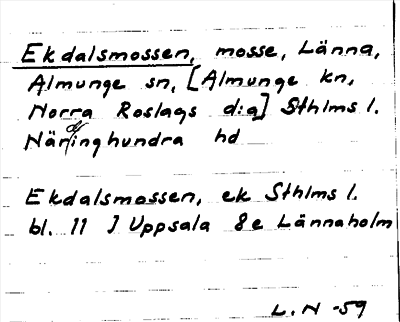 Ekdalsmossen, mosse, Länna,
Almunge sn, [Almunge kn,
Norra Roslags d:a] Sthlms l.
Närdinghundra hd
Ekdalsmossen, ek Sthlms l.
bl. 11 J Uppsala 8e Lännaholm
L.N -59